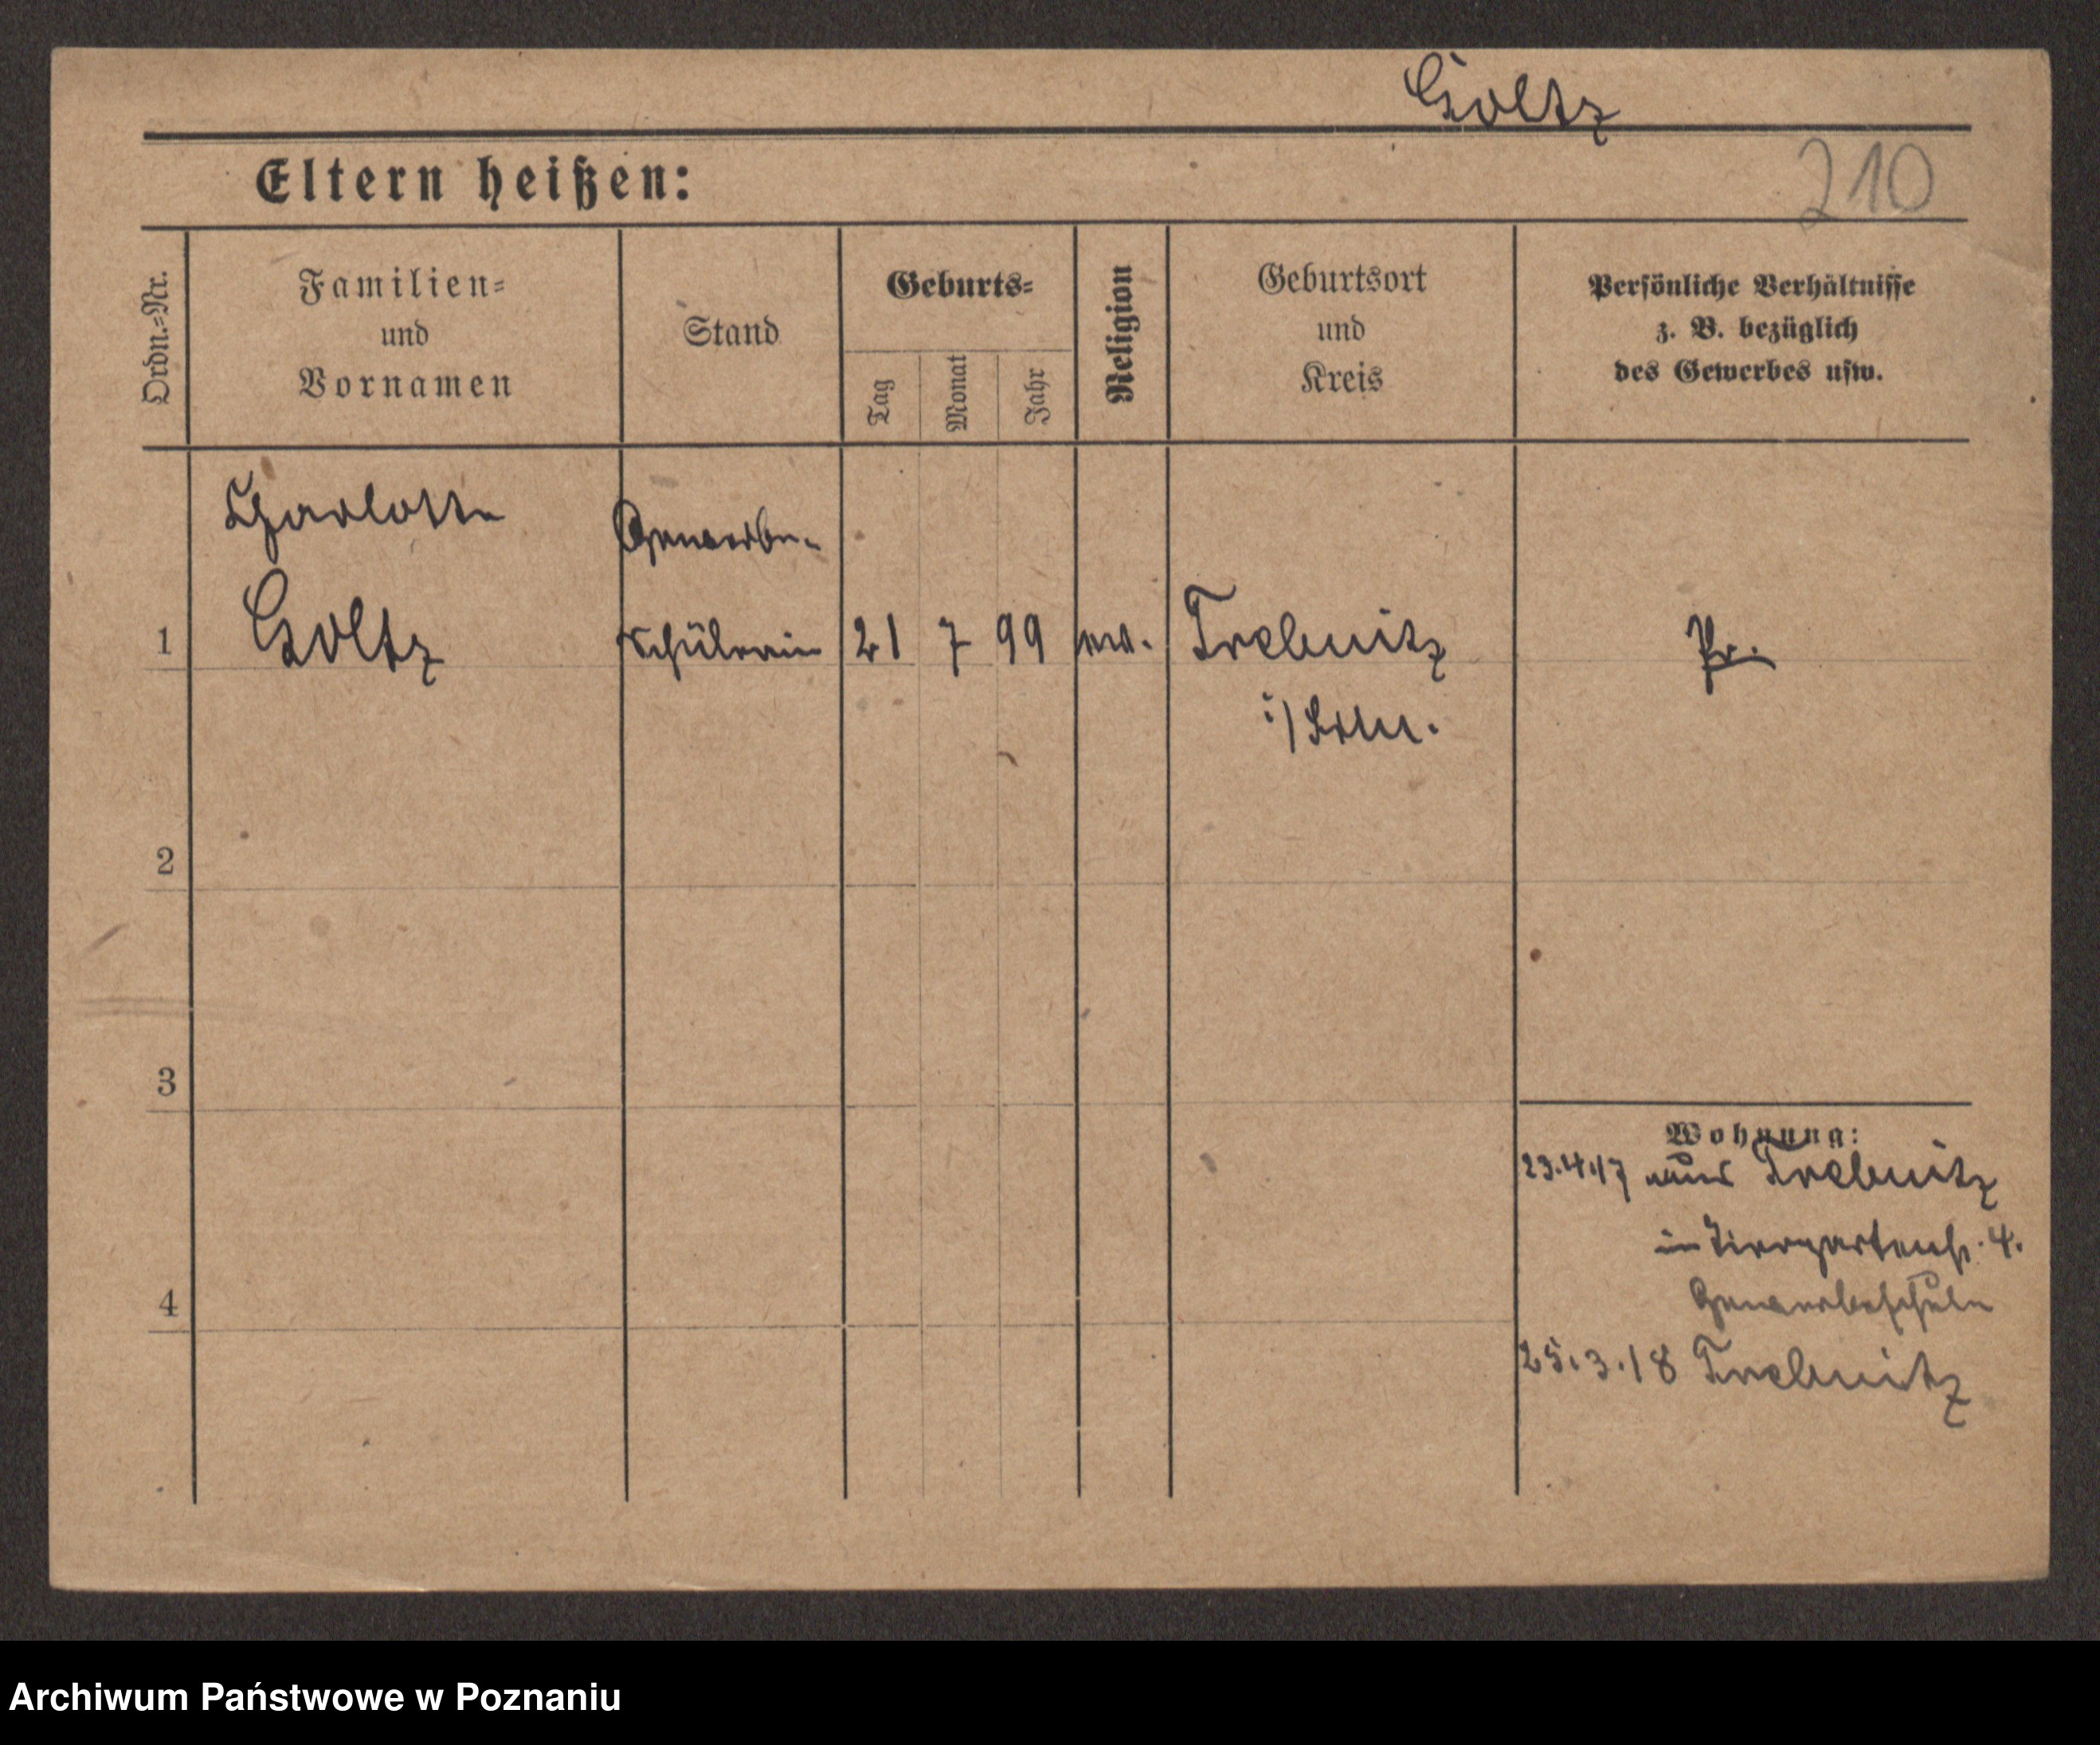 Goltz
Eltern heißen:
210
Ordn.=Nr.
Familien=
und
Vornamen
Stand
Geburts=
Tag
Monat
Jahr
Religion
Geburtsort
und
Kreis
Persönliche Verhältnisse
z. B. bezüglich
des Gewerbes usw.
Charlotte
Gewerbe-
1 Goltz schülerin 21 7 99 ev. Trebnitz Pr.
i/Schl.
2
3
4
Wohnung:
23.4.17 aus Trebnitz
in Tiergartenstr. 4.
Gewerbeschule
25.3.18 Trebnitz
Archiwum Państwowe w Poznaniu